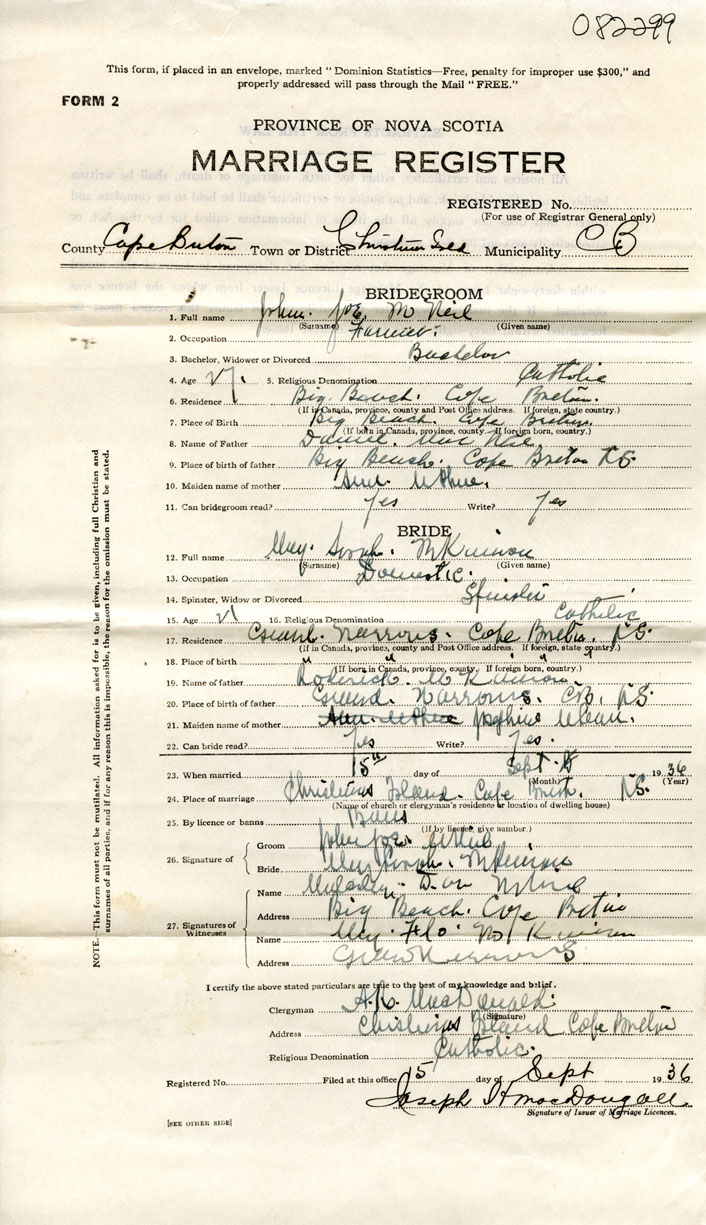 082299
This form, if placed in an envelope, marked "Dominion Statistics—Free, penalty for improper use $300," and
properly addressed will pass through the Mail "FREE."
FORM 2
PROVINCE OF NOVA SCOTIA
MARRIAGE REGISTER
REGISTERED No.
(For use of Registrar General only)
County Cape Breton Town or District Christmas Isld Municipality CB
BRIDEGROOM
1. Full name John Joe Mc Neil
(Surname) (Given name)
2. Occupation Farmer
3. Bachelor, Widower or Divorced Bachelor
4. Age 5. Religious Denomination Catholic
6. Residence Big Beach. Cape Breton.
(If in Canada, province, county and Post Office address. If foreign, state country.)
7. Place of Birth Big Beach. Cape Breton.
(If born in Canada, province, county. If foreign born, country.)
8. Name of Father Daniel Mac Neil
9. Place of birth of father Big Beach. Cape Breton N.S.
10. Maiden name of mother
11. Can bridegroom read? Yes Write? Yes
BRIDE
12. Full name May. Sarah. McKinnon
(Surname) (Given name)
13. Occupation Domestic.
14. Spinster, Widow or Divorced Spinster
15. Age 16. Religious Denomination Catholic
17. Residence Grand Narrows. Cape Breton. N.S.
(If in Canada, province, county and Post Office address. If foreign, state country.)
18. Place of birth " " " "
(If born in Canada, province, county. If foreign born, country.)
19. Name of father Roderick McKinnon.
20. Place of birth of father Grand Narrows. C.B. N.S.
21. Maiden name of mother Josephine
22. Can bride read? Yes Write? Yes.
23. When married 15th day of Sept 1936
(Month) (Year)
24. Place of marriage Christmas Island. Cape Breton. N.S.
(Name of church or clergyman's residence or location of dwelling house)
25. By licence or banns Banns
(If by licence, give number.)
26. Signature of
Groom John Joe McNeil
Bride May Sarah. McKinnon
27. Signatures of Witnesses
Name Dan McNeil
Address Big Beach. Cape Breton
Name May Flo McKinnon
Address Grand Narrows
I certify the above stated particulars are true to the best of my knowledge and belief.
Clergyman MacDonald
(Signature)
Address Christmas Island Cape Breton
Religious Denomination Catholic.
Registered No. Filed at this office 15 day of Sept 1936
Joseph H MacDougall
Signature of Issuer of Marriage Licences.
[SEE OTHER SIDE]
NOTE. This form must not be mutilated. All information asked for is to be given, including full Christian and
surnames of all parties, and if for any reason this is impossible, the reason for the omission must be stated.